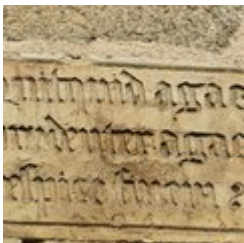 uitquid agas
rudenter agas
respice finem :